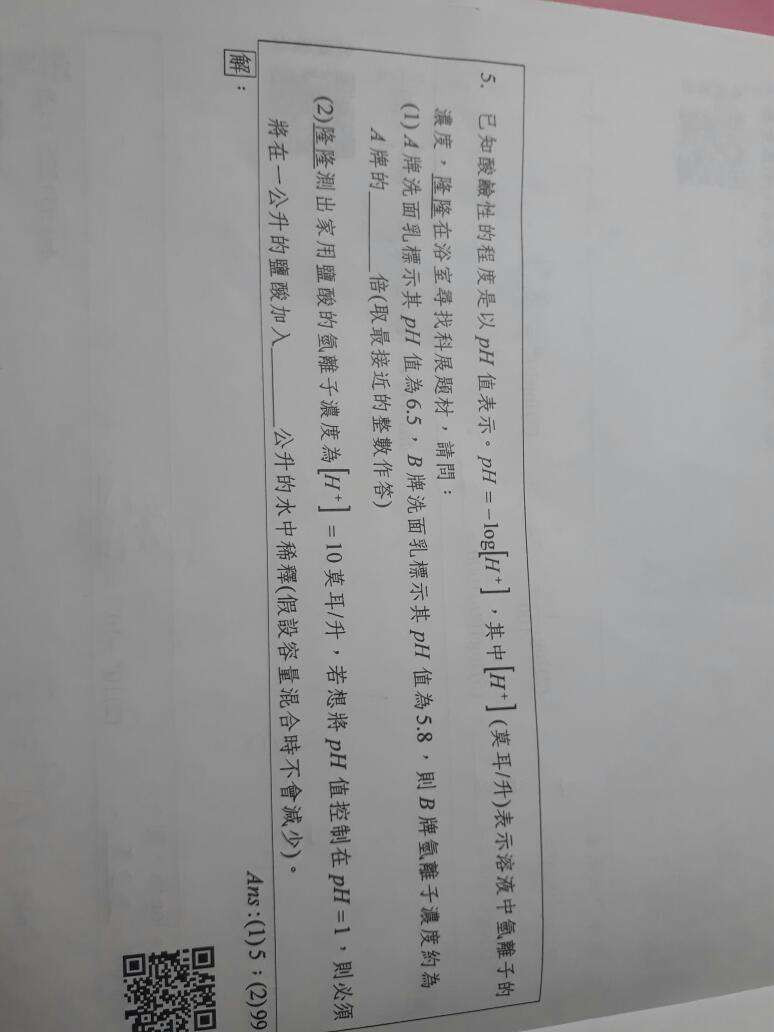 5. 已知酸鹼性的程度是以 pH 值表示。pH = −log[H⁺]，其中[H⁺](莫耳/升)表示溶液中氫離子的
濃度，隆隆在浴室尋找科展題材，請問：
(1) A 牌洗面乳標示其 pH 值為 6.5，B 牌洗面乳標示其 pH 值為 5.8，則 B 牌氫離子濃度約為
A 牌的______倍(取最接近的整數作答)
(2)隆隆測出家用鹽酸的氫離子濃度為[H⁺] = 10 莫耳/升，若想將 pH 值控制在 pH = 1，則必須
將在一公升的鹽酸加入______公升的水中稀釋(假設容量混合時不會減少)。
Ans : (1) 5 ; (2) 99
解：